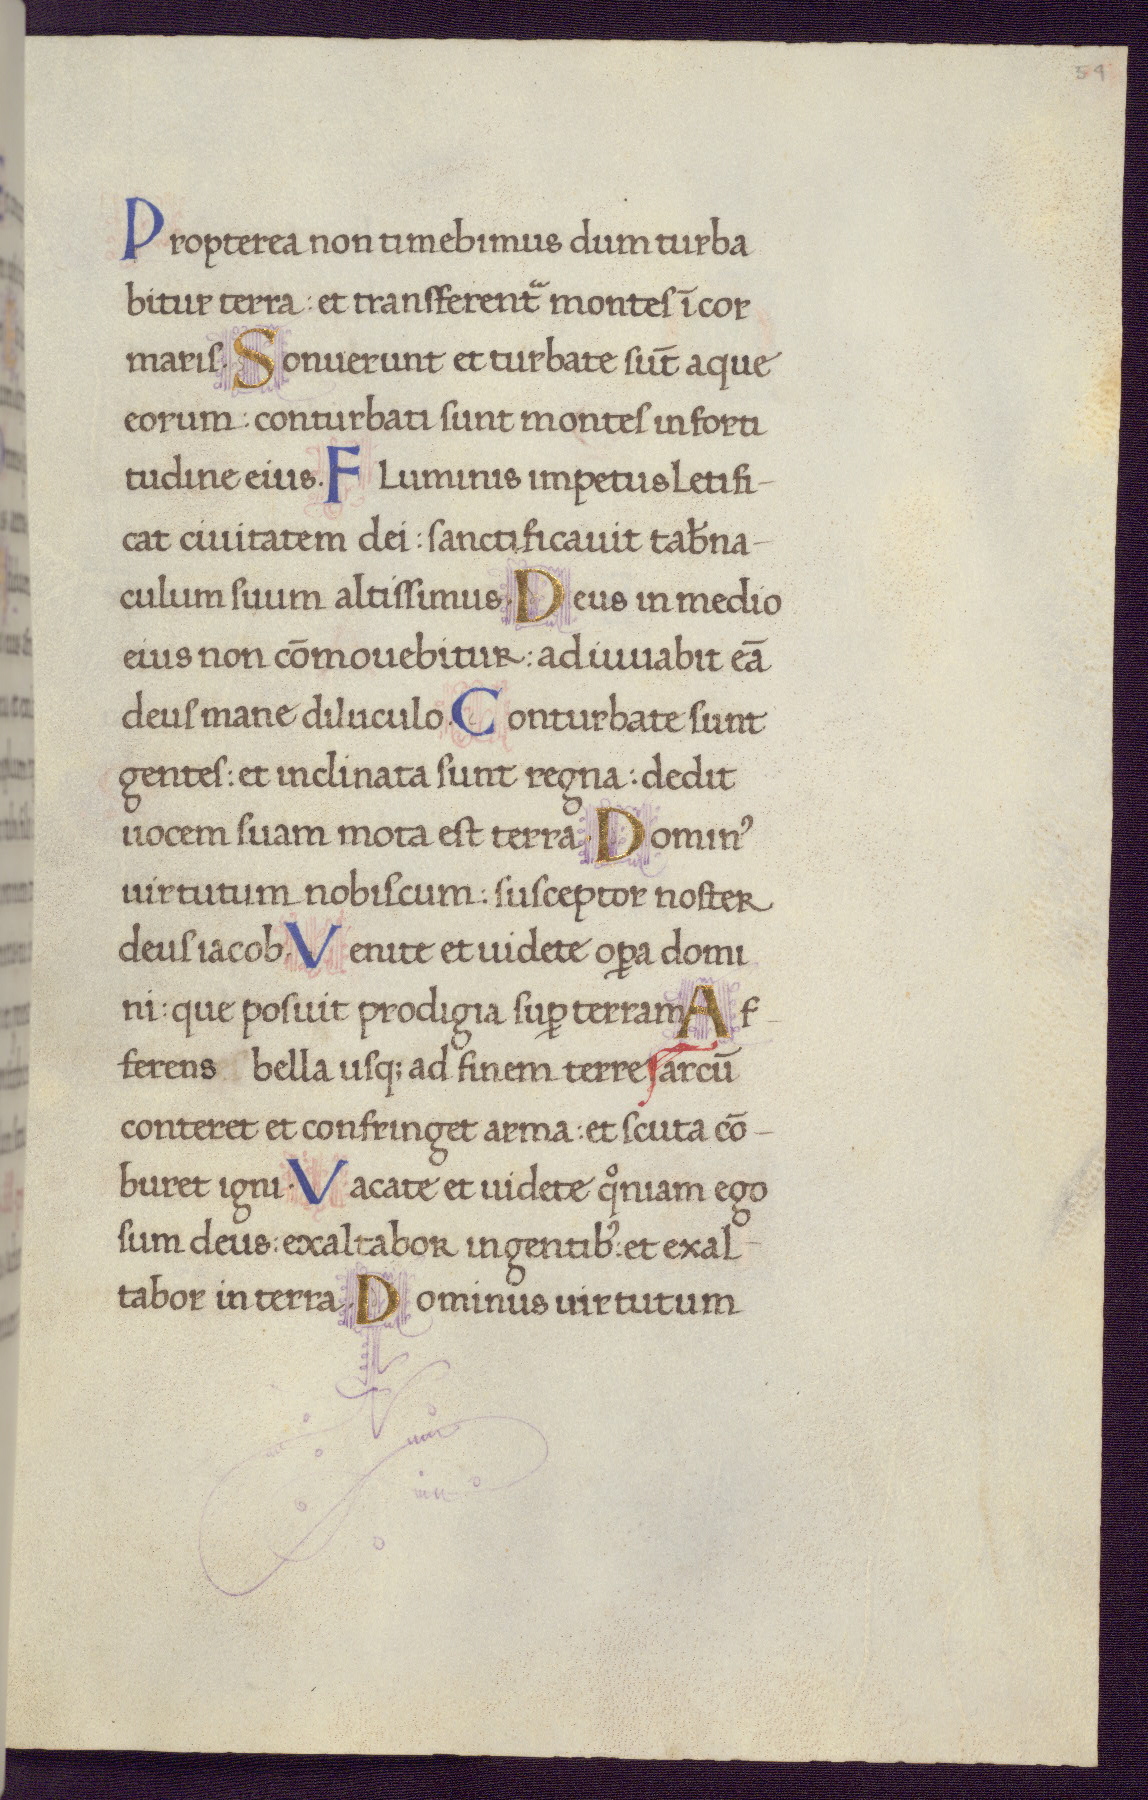 54
Propterea non timebimus dum turba
bitur terra : et transferentᷓ montes ī cor
maris. Sonuerunt et turbate sūt aque
eorum : conturbati sunt montes in forti
tudine eius. Fluminis impetus letifi-
cat ciuitatem dei : sanctificauit tab̄na-
culum suum altissimus. Deus in medio
eius non cōmouebitur : adiuuabit eā
deus mane diluculo. Conturbate sunt
gentes : et inclinata sunt regna : dedit
uocem suam mota est terra. Dominꝰ
uirtutum nobiscum : susceptor noster
deus iacob. Venite et uidete oꝑa domi
ni : que posuit prodigia suꝑ terram Af-
ferens bella usq; ad finem terre arcū
conteret et confringet arma : et scuta cō-
buret igni. Vacate et uidete qͦniam ego
sum deus : exaltabor in gentibꝰ : et exal-
tabor in terra. Dominus uirtutum